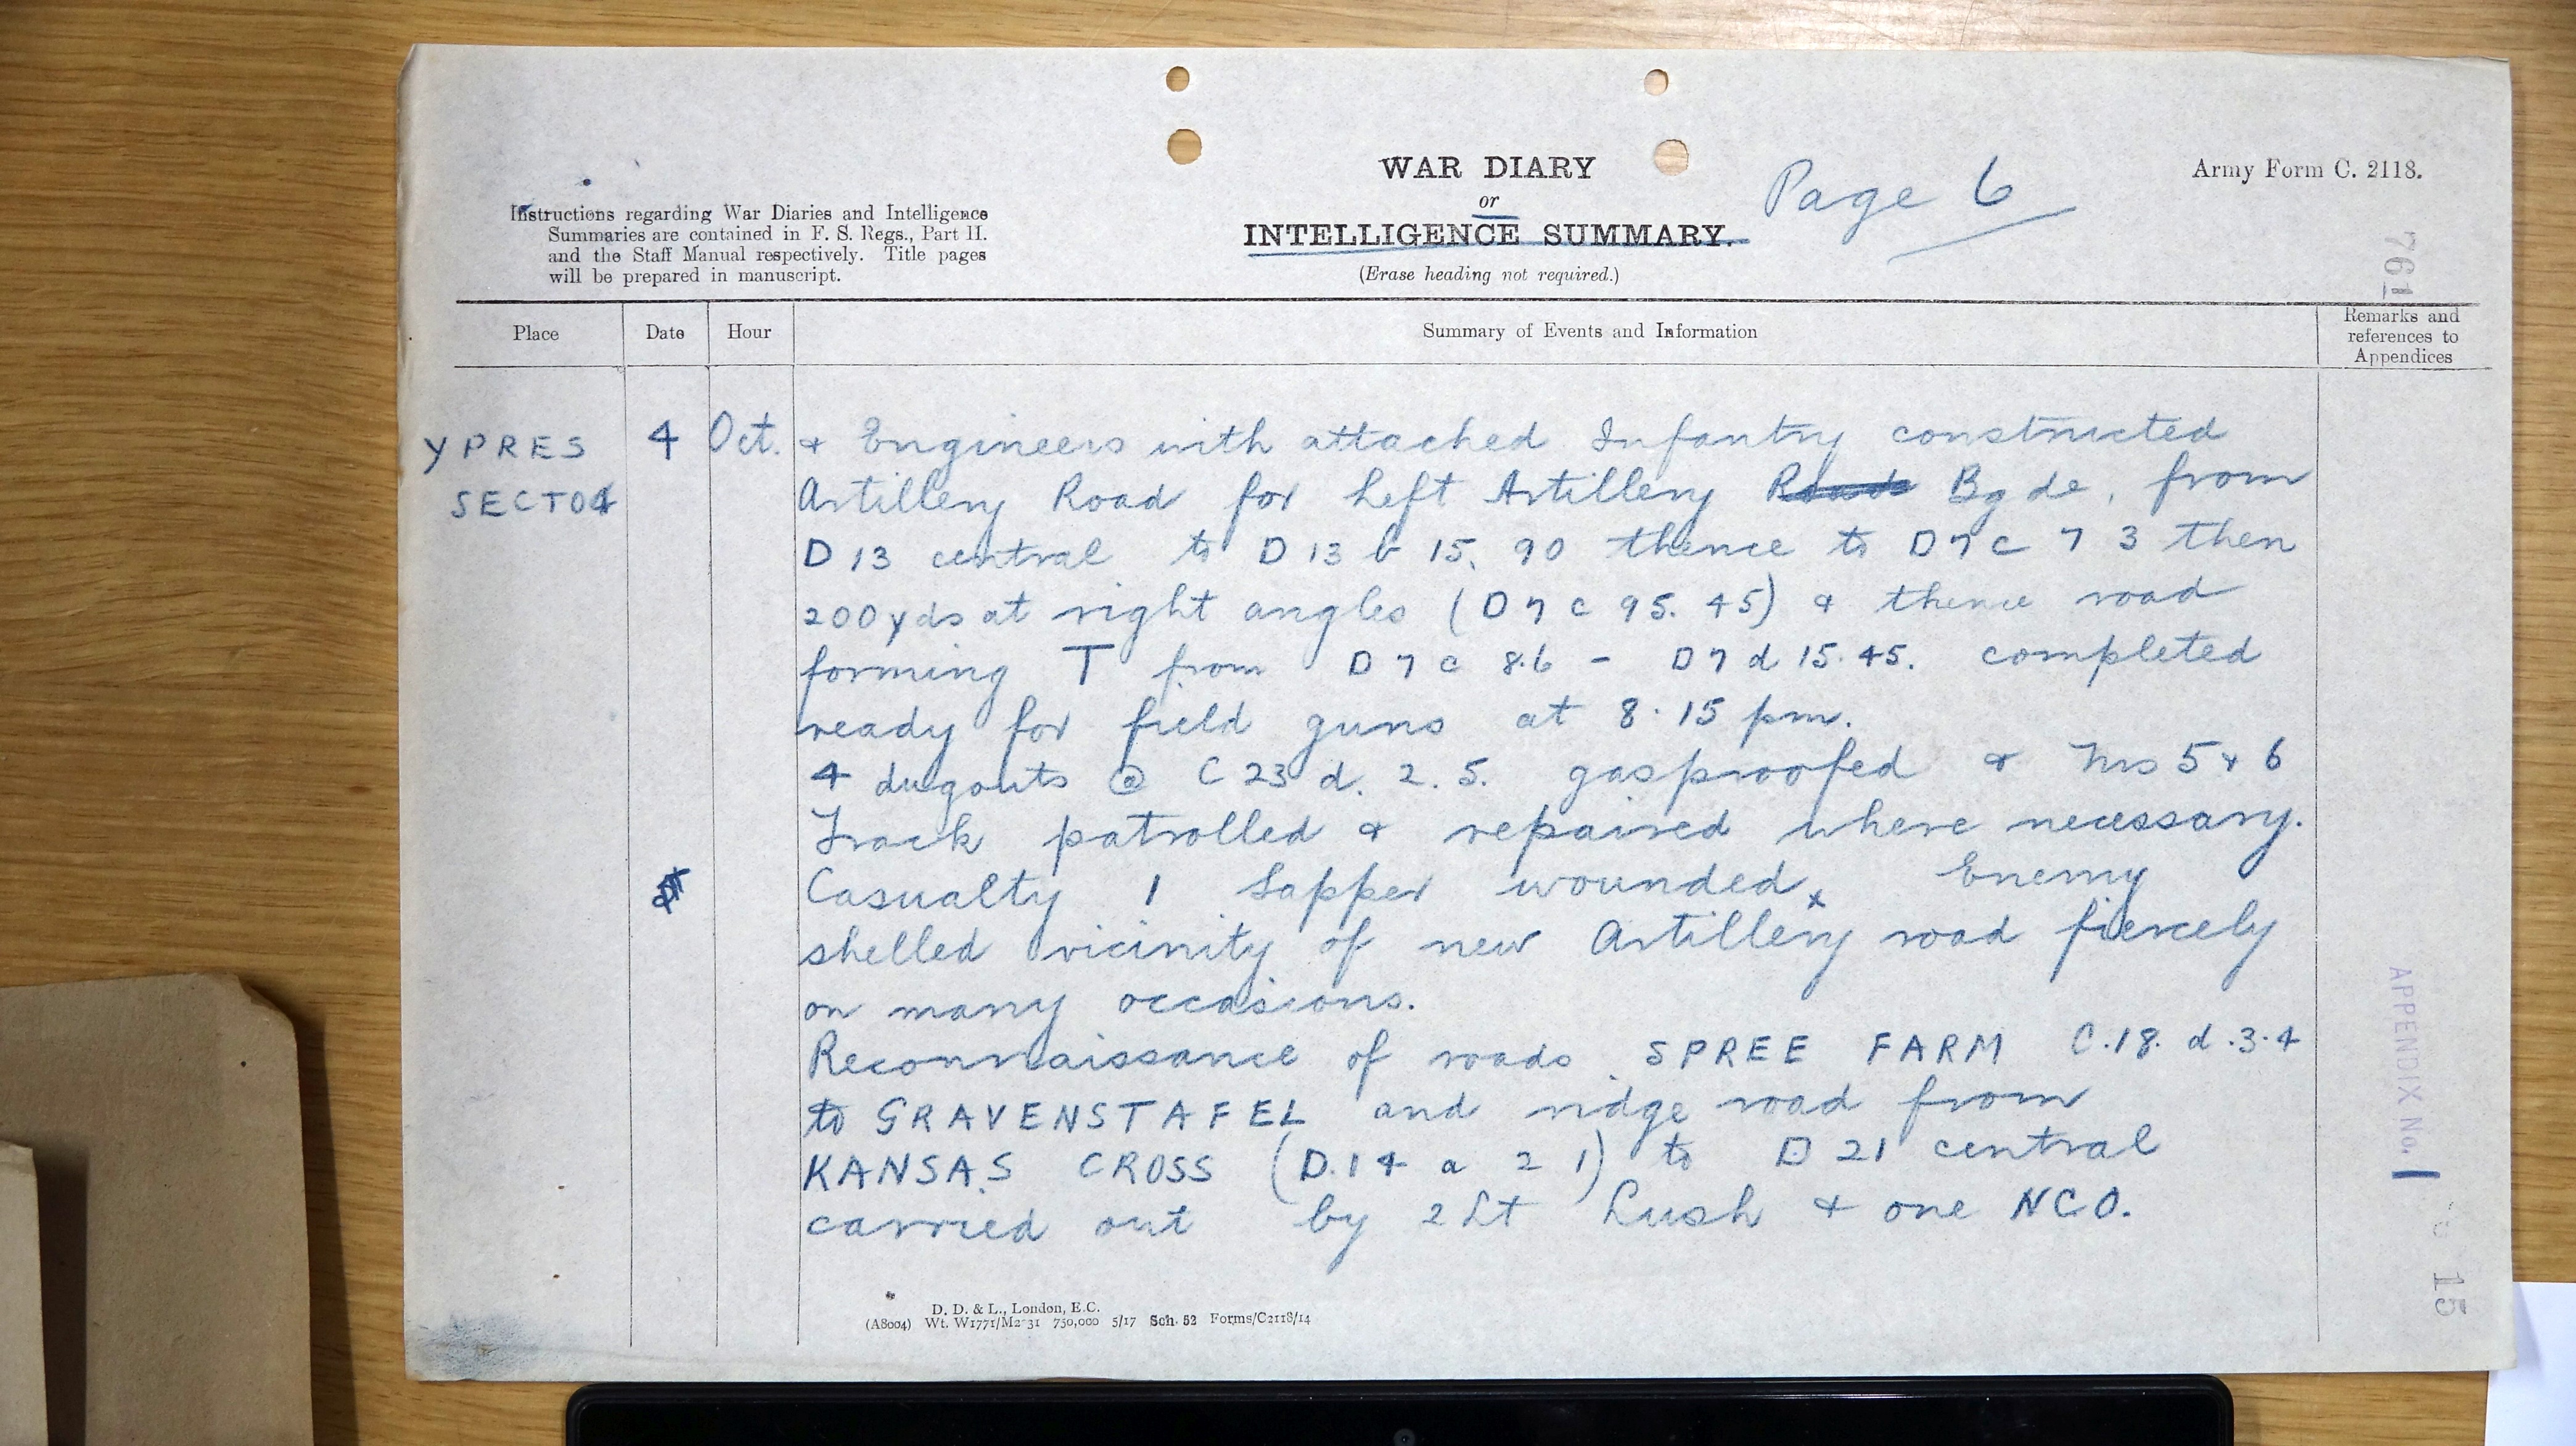 WAR DIARY
or
INTELLIGENCE SUMMARY.
(Erase heading not required.)
Page 6
Army Form C. 2118.
Instructions regarding War Diaries and Intelligence
Summaries are contained in F. S. Regs., Part II.
and the Staff Manual respectively. Title pages
will be prepared in manuscript.
761
Place
Date
Hour
Summary of Events and Information
Remarks and
references to
Appendices
YPRES
SECTOR
4 Oct.
& Engineers with attached Infantry constructed
Artillery Road for Left Artillery Bgde, from
D 13 central to D 13 b 15. 90 thence to D 7 c 7 3 then
200 yds at right angles (D 7 c 95. 45) & thence road
forming T from D 7 c 8.6 - D 7 d 15.45. completed
ready for field guns at 8.15 pm.
4 dugouts @ C 23 d. 2. 5. gasproofed & Nos 5 & 6
Track patrolled & repaired where necessary.
Casualty 1 Sapper wounded. Enemy
shelled vicinity of new Artillery road fiercely
on many occasions.
Reconnaissance of roads SPREE FARM C.18. d.3.4
to GRAVENSTAFEL and ridge road from
KANSAS CROSS (D.14 a 2 1) to D 21 central
carried out by 2 Lt Lush & one NCO.
APPENDIX No. 1
15
D. D. & L., London, E.C.
(A8004) Wt. W1771/M2 31 750,000 5/17 Sch. 52 Forms/C2118/14